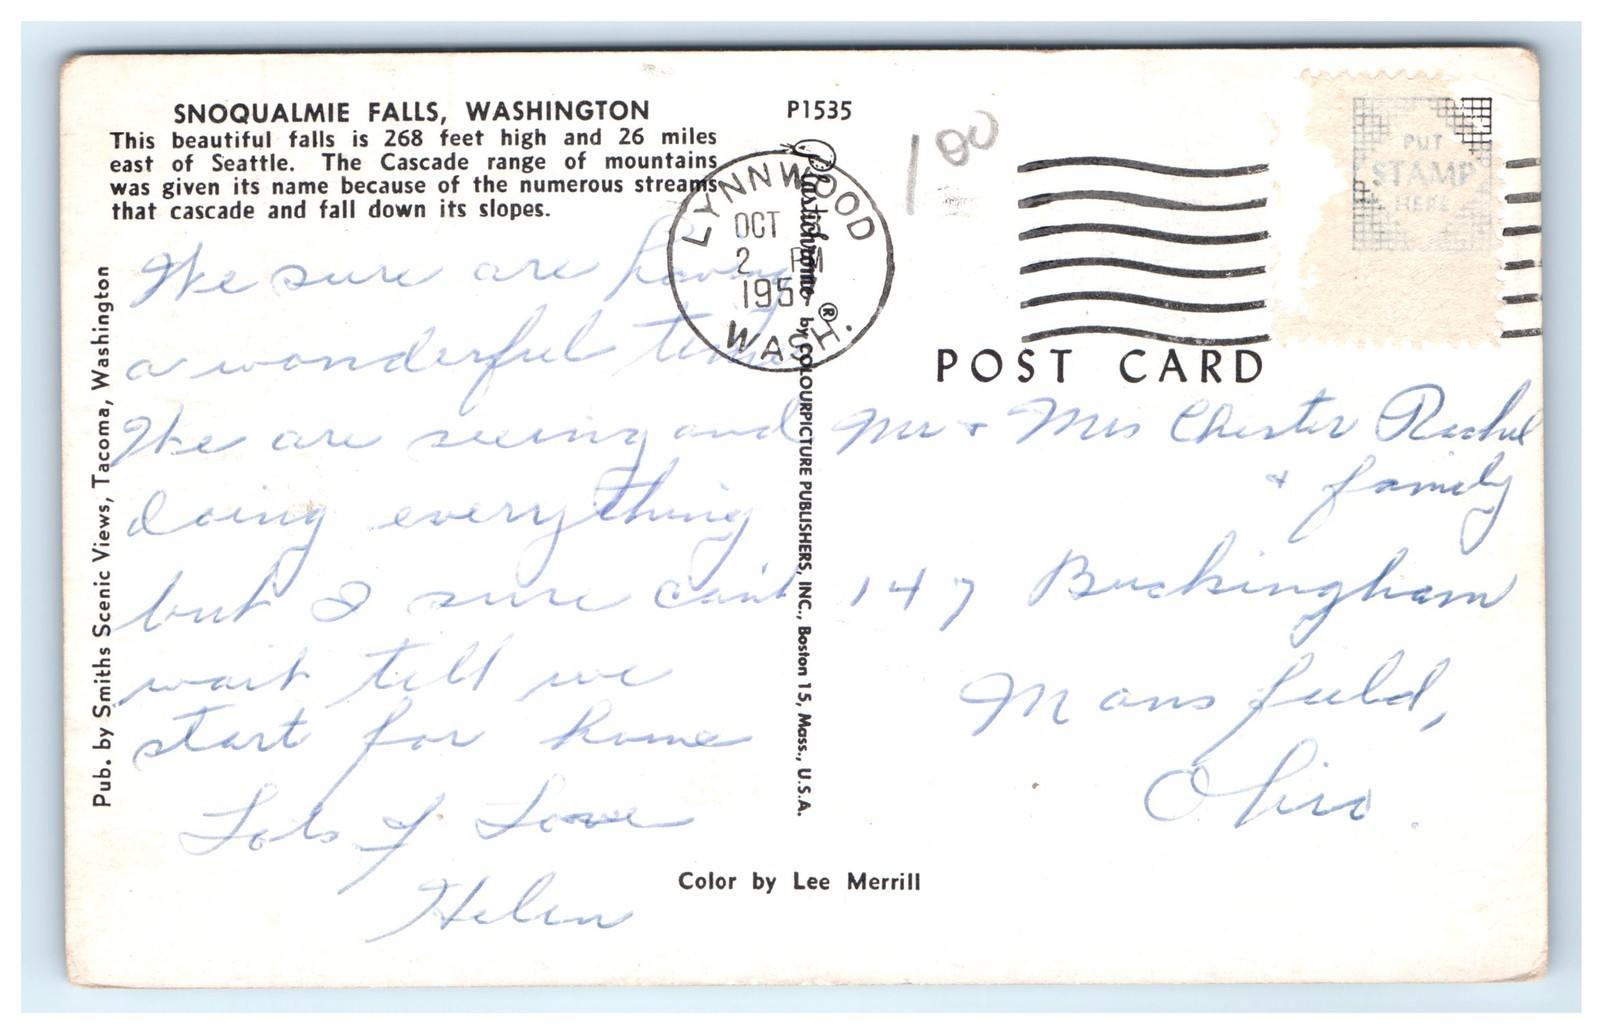 SNOQUALMIE FALLS, WASHINGTON
This beautiful falls is 268 feet high and 26 miles
east of Seattle. The Cascade range of mountains
was given its name because of the numerous streams
that cascade and fall down its slopes.
P1535
100
LYNNWOOD
OCT
2 PM
195
WASH.
PUT
STAMP
HERE
POST CARD
We sure are having
a wonderful time
We are seeing and
doing everything
but I sure can't
wait till we
start for home
Lots of Love
Helen
Mr + Mrs Chester
+ family
147 Buckingham
Mansfield,
Ohio.
Pub. by Smiths Scenic Views, Tacoma, Washington
Plastichrome ® by COLOURPICTURE PUBLISHERS, INC., Boston 15, Mass., U.S.A.
Color by Lee Merrill